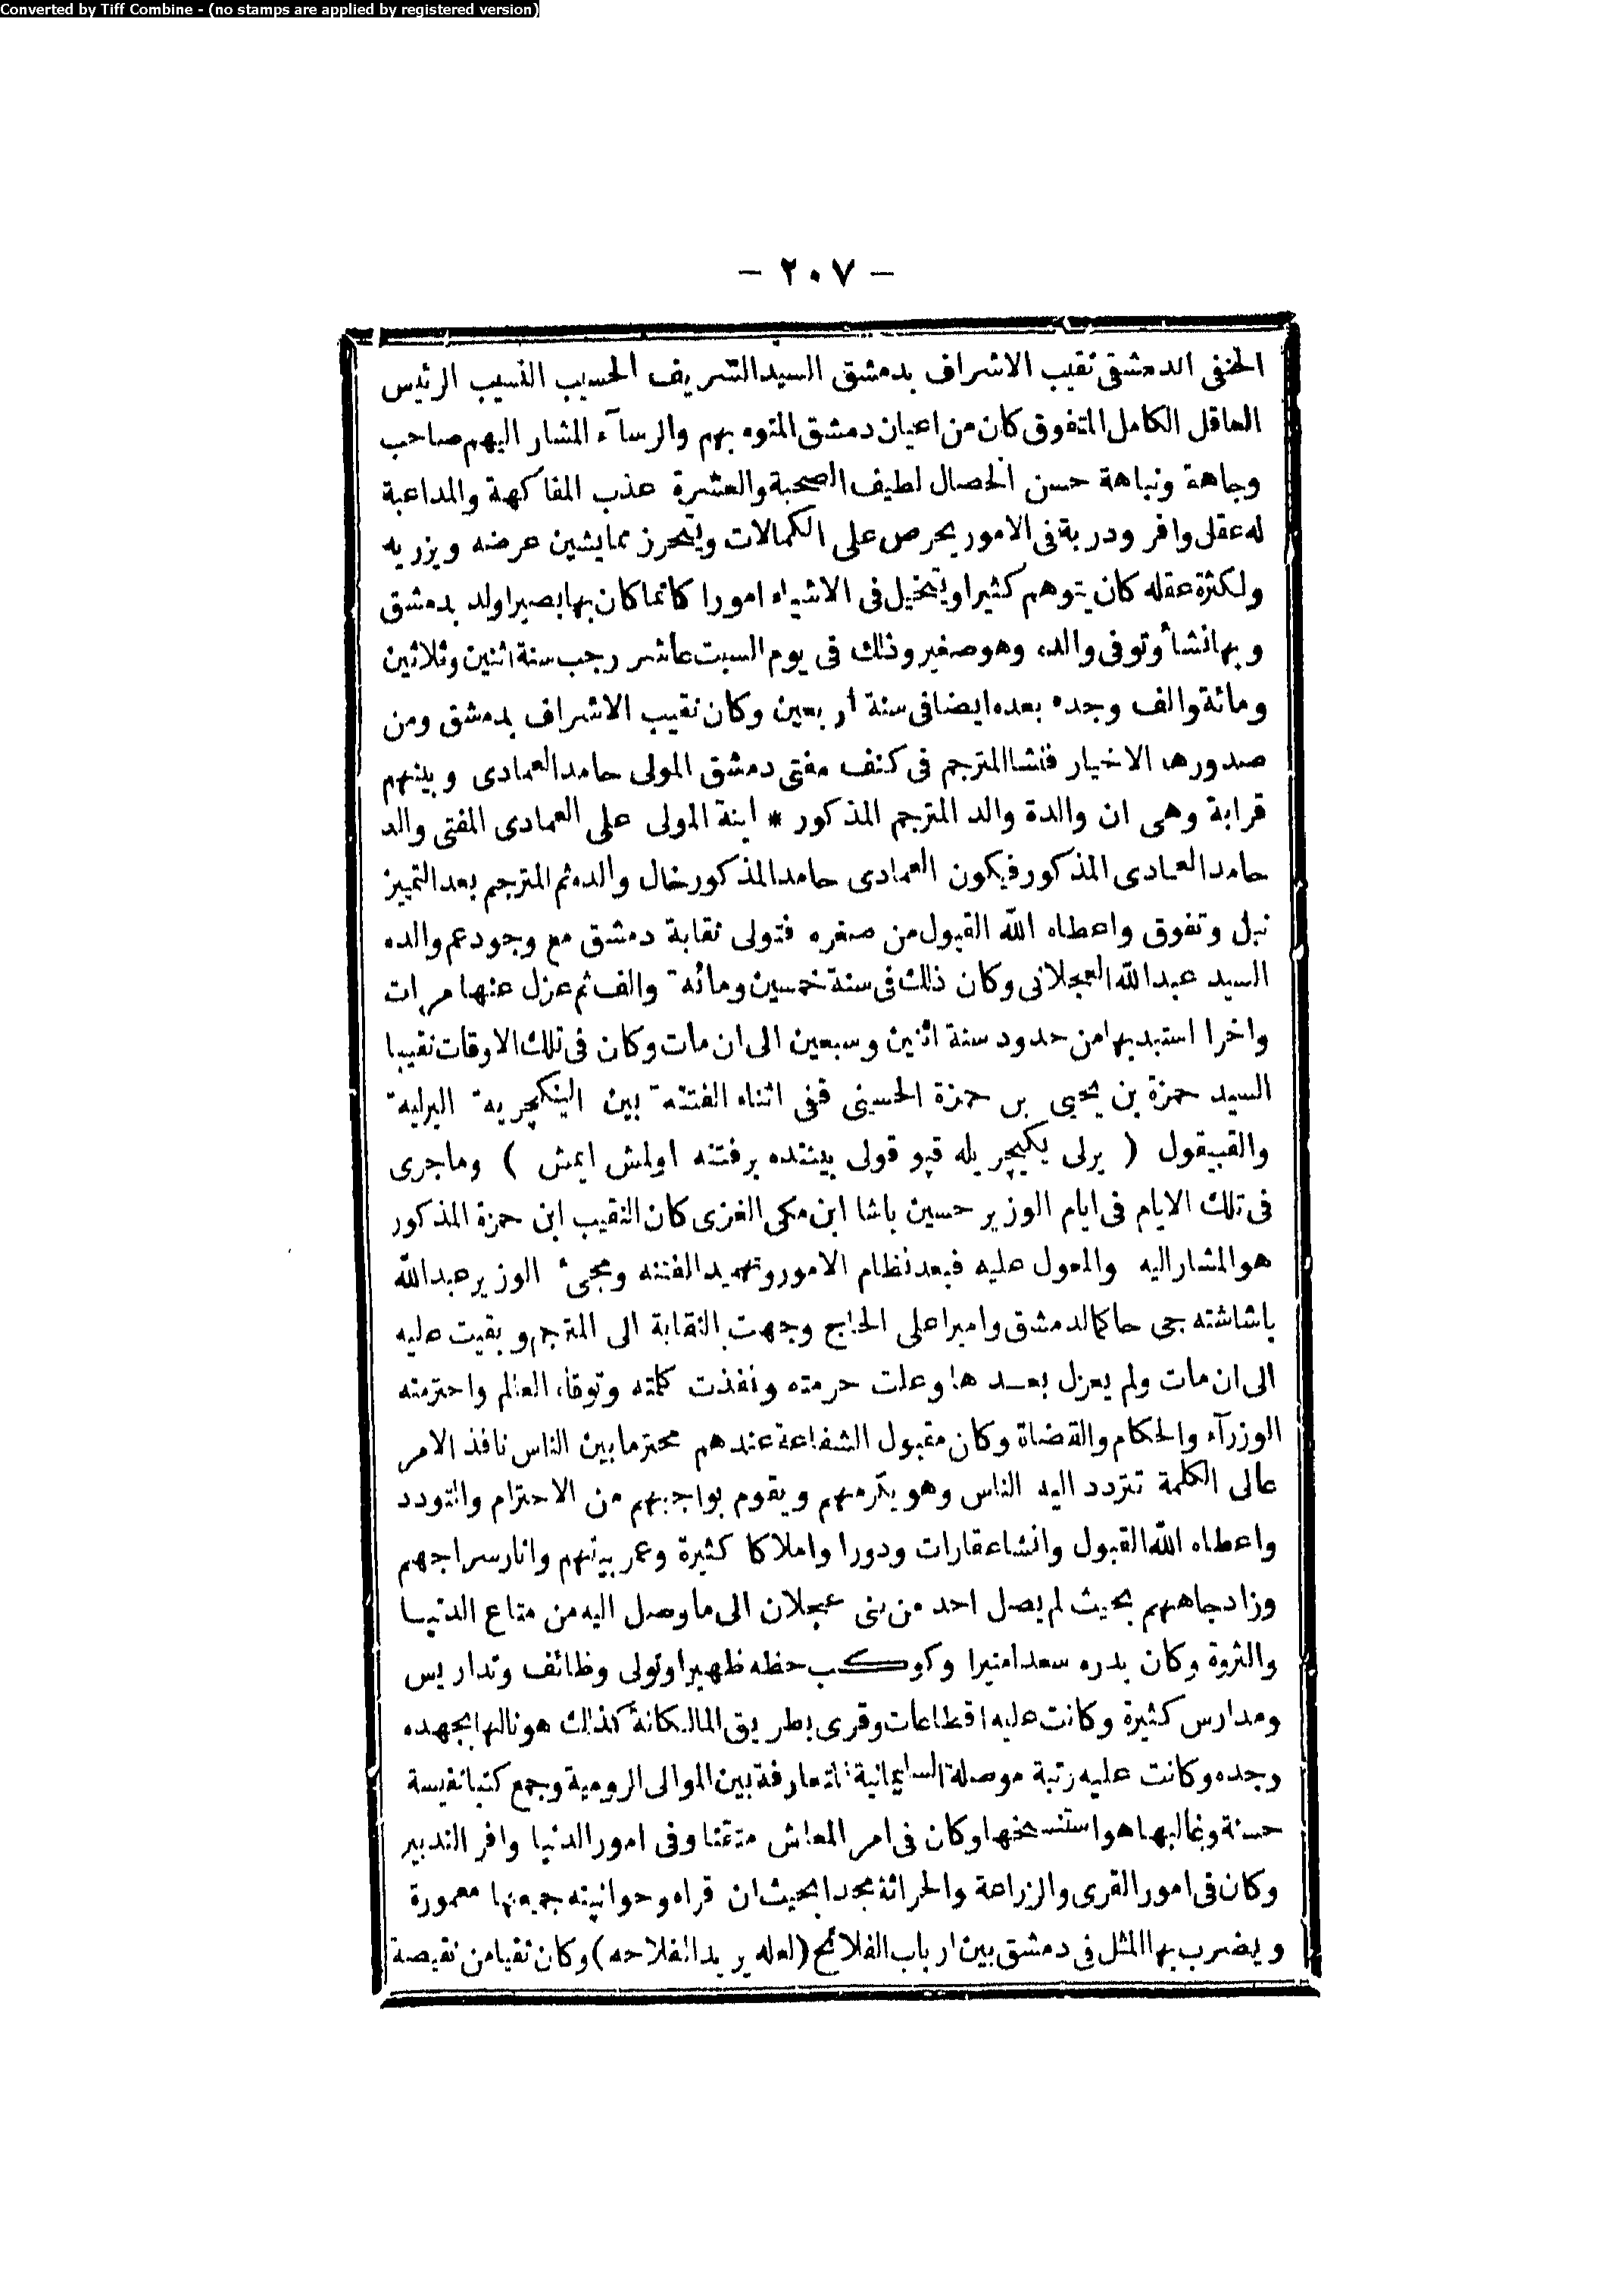 Converted by Tiff Combine - (no stamps are applied by registered version)
- ٢٠٧ -
الحنفى الدمشقى نقيب الاشراف بدمشق السيد الشريف الحسيب النسيب الرئيس
العاقل الكامل المتفوق كان من اعيان دمشق المنوه بهم والرسآء المشار اليهم صاحب
وجاهة ونباهة حسن الخصال لطيف الصحبة والعشرة عذب المفاكهة والمداعبة
له عقل وافر ودربة فى الامور يحرص على الكمالات ويتحرز مما يشين عرضه ويزريه
ولكثرة عقله كان يتوهم كثيرا ويتخيل فى الاشياء امورا كانما كان بها بصيرا ولد بدمشق
وبها نشأ وتوفى والده وهو صغير وذلك فى يوم السبت عاشر رجب سنة اثنين وثلاثين
ومائة والف وجده بعده ايضا فى سنة أربعين وكان نقيب الاشراف بدمشق ومن
صدورها الاخيار فنشا المترجم فى كنف مفتى دمشق المولى حامد العمادى وبينهم
قرابة وهى ان والدة والد المترجم المذكور * ابنة المولى على العمادى المفتى والد
حامد العمادى المذكور فيكون العمادى حامد المذكور خال والده ثم المترجم بعد التمييز
نبل وتفوق واعطاه الله القبول من صغره فتولى نقابة دمشق مع وجود عم والده
السيد عبد الله العجلانى وكان ذلك فى سنة خمسين ومائه والف ثم عزل عنها مرات
واخرا استبد بها من حدود سنة اثنين وسبعين الى ان مات وكان فى تلك الاوقات نقيبا
السيد حمزة بن يحيى بن حمزة الحسينى ففى اثناء الفتنه بين الينكجريه اليرليه
والقبيقول ( يرلى يكيچريله قپو قولى بيننده برفتنه اولمش ايمش ) وماجرى
فى تلك الايام فى ايام الوزير حسين باشا ابن مكى الغزى كان النقيب ابن حمزة المذكور
هو المشار اليه والمعول عليه فبعد نظام الامور وتمهيد الفتنه ومجئ الوزير عبد الله
باشا شته جى حاكما لدمشق واميرا على الحاج وجهت النقابة الى المترجم وبقيت عليه
الى ان مات ولم يعزل بعدها وعلت حرمته ونفذت كلمته وتوقاه العالم واحترمته
الوزرآء والحكام والقضاة وكان مقبول الشفاعة عندهم محترما بين الناس نافذ الامر
عالى الكلمة تتردد اليه الناس وهو يكرمهم ويقوم بواجبهم من الاحترام والتودد
واعطاه الله القبول وانشا عقارات ودورا واملاكا كثيرة وعمر بيتهم وانار سراجهم
وزاد جاههم بحيث لم يصل احد من بنى عجلان الى ما وصل اليه من متاع الدنيا
والثروة وكان بدره سعدا منيرا وكوكب حظه ظهيرا وتولى وظائف وتداريس
ومدارس كثيرة وكانت عليه اقطاعات وقرى بطريق المالكانة كذلك هو نالها بجهده
وجده وكانت عليه رتبة موصلة السليمانية المتعارفة بين الموالى الرومية وجمع كتبا نفيسة
حسنة وغالبها هو استنسخها وكان فى امر المعاش متقنا وفى امور الدنيا وافر التدبير
وكان فى امور القرى والزراعة والحراثة مجدا بحيث ان قراه وحوانيته جميعها معمورة
ويضرب بها المثل فى دمشق بين ارباب الفلائح (لعله يريد الفلاحه) وكان نقيا من نقيصة